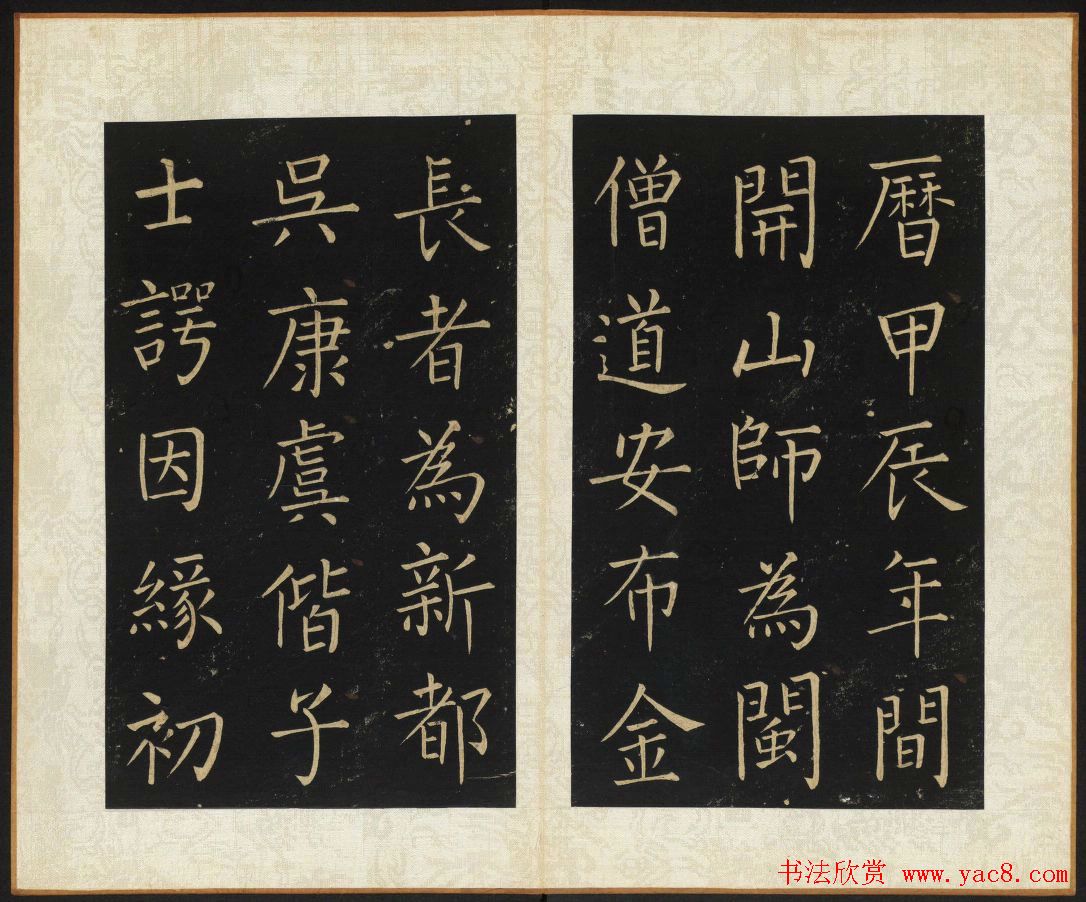 暦甲辰年間
開山師為閩
僧道安布金
長者為新都
吳康虞偕子
士諤因緣初
书法欣赏 www.yac8.com